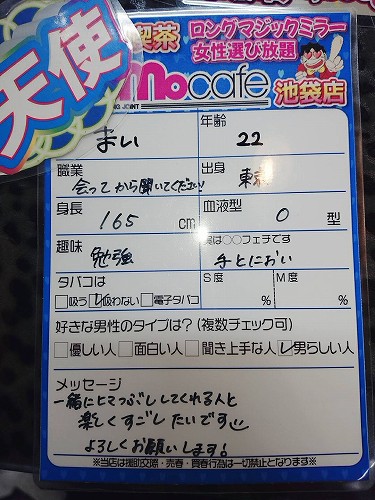 天使
喫茶
ロングマジックミラー
女性選び放題
mocafe
池袋店
まい
年齢
22
職業
会ってから聞いてください!
出身
東京
身長
165 cm
血液型
O 型
趣味
勉強
実は○○フェチです
手とにおい
タバコは
吸う 吸わない 電子タバコ
S度
%
M度
%
好きな男性のタイプは?(複数チェック可)
優しい人 面白い人 聞き上手な人 男らしい人
メッセージ
一緒にヒマつぶししてくれる人と
楽しくすごしたいです
よろしくお願いします!
※当店は援助交際・売春・買春行為は一切禁止となります※